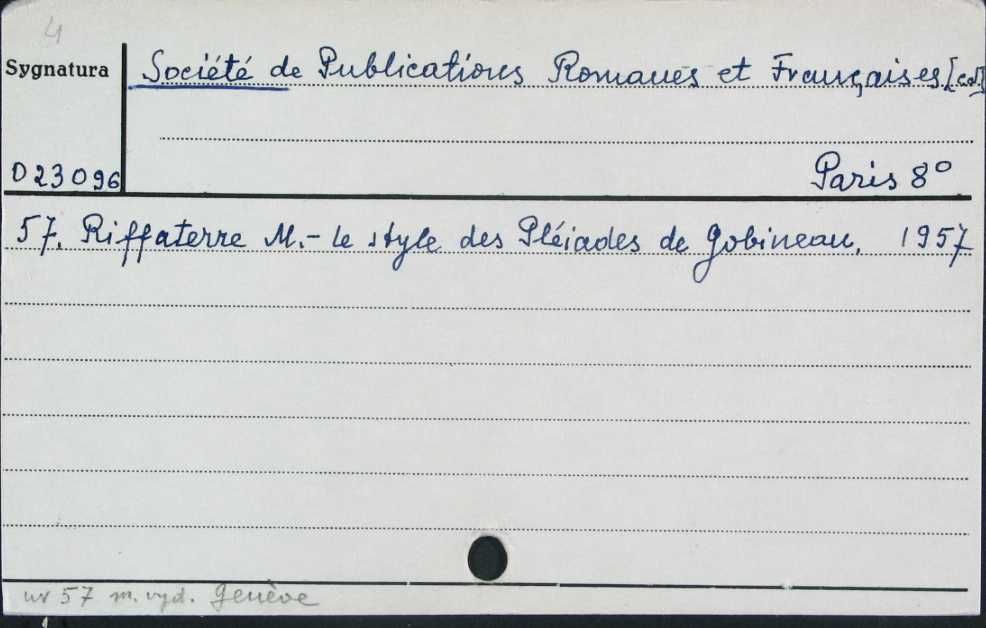 4
Sygnatura
Société de Publications Romanes et Françaises [col]
D 23096
Paris 8°
57. Riffaterre M. - Le style des Pléiades de Gobineau, 1957
nr 57 m. wyd. Genève